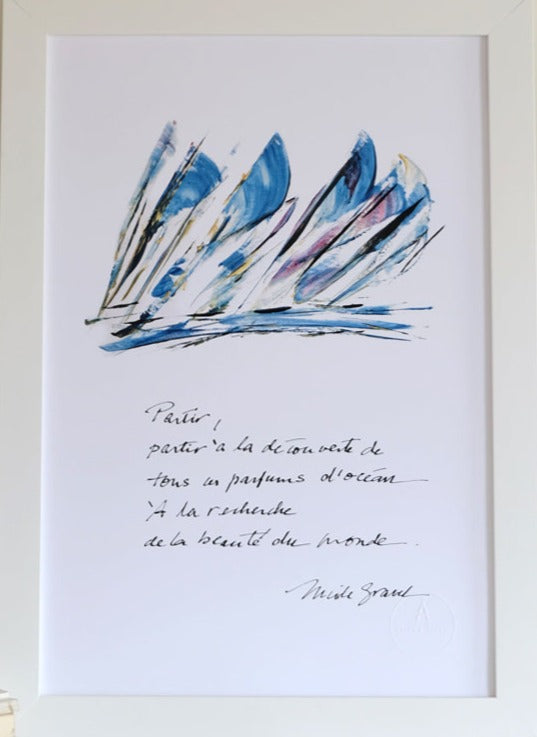 Partir,
partir à la découverte de
tous ces parfums d'océan
À la recherche
de la beauté du monde.